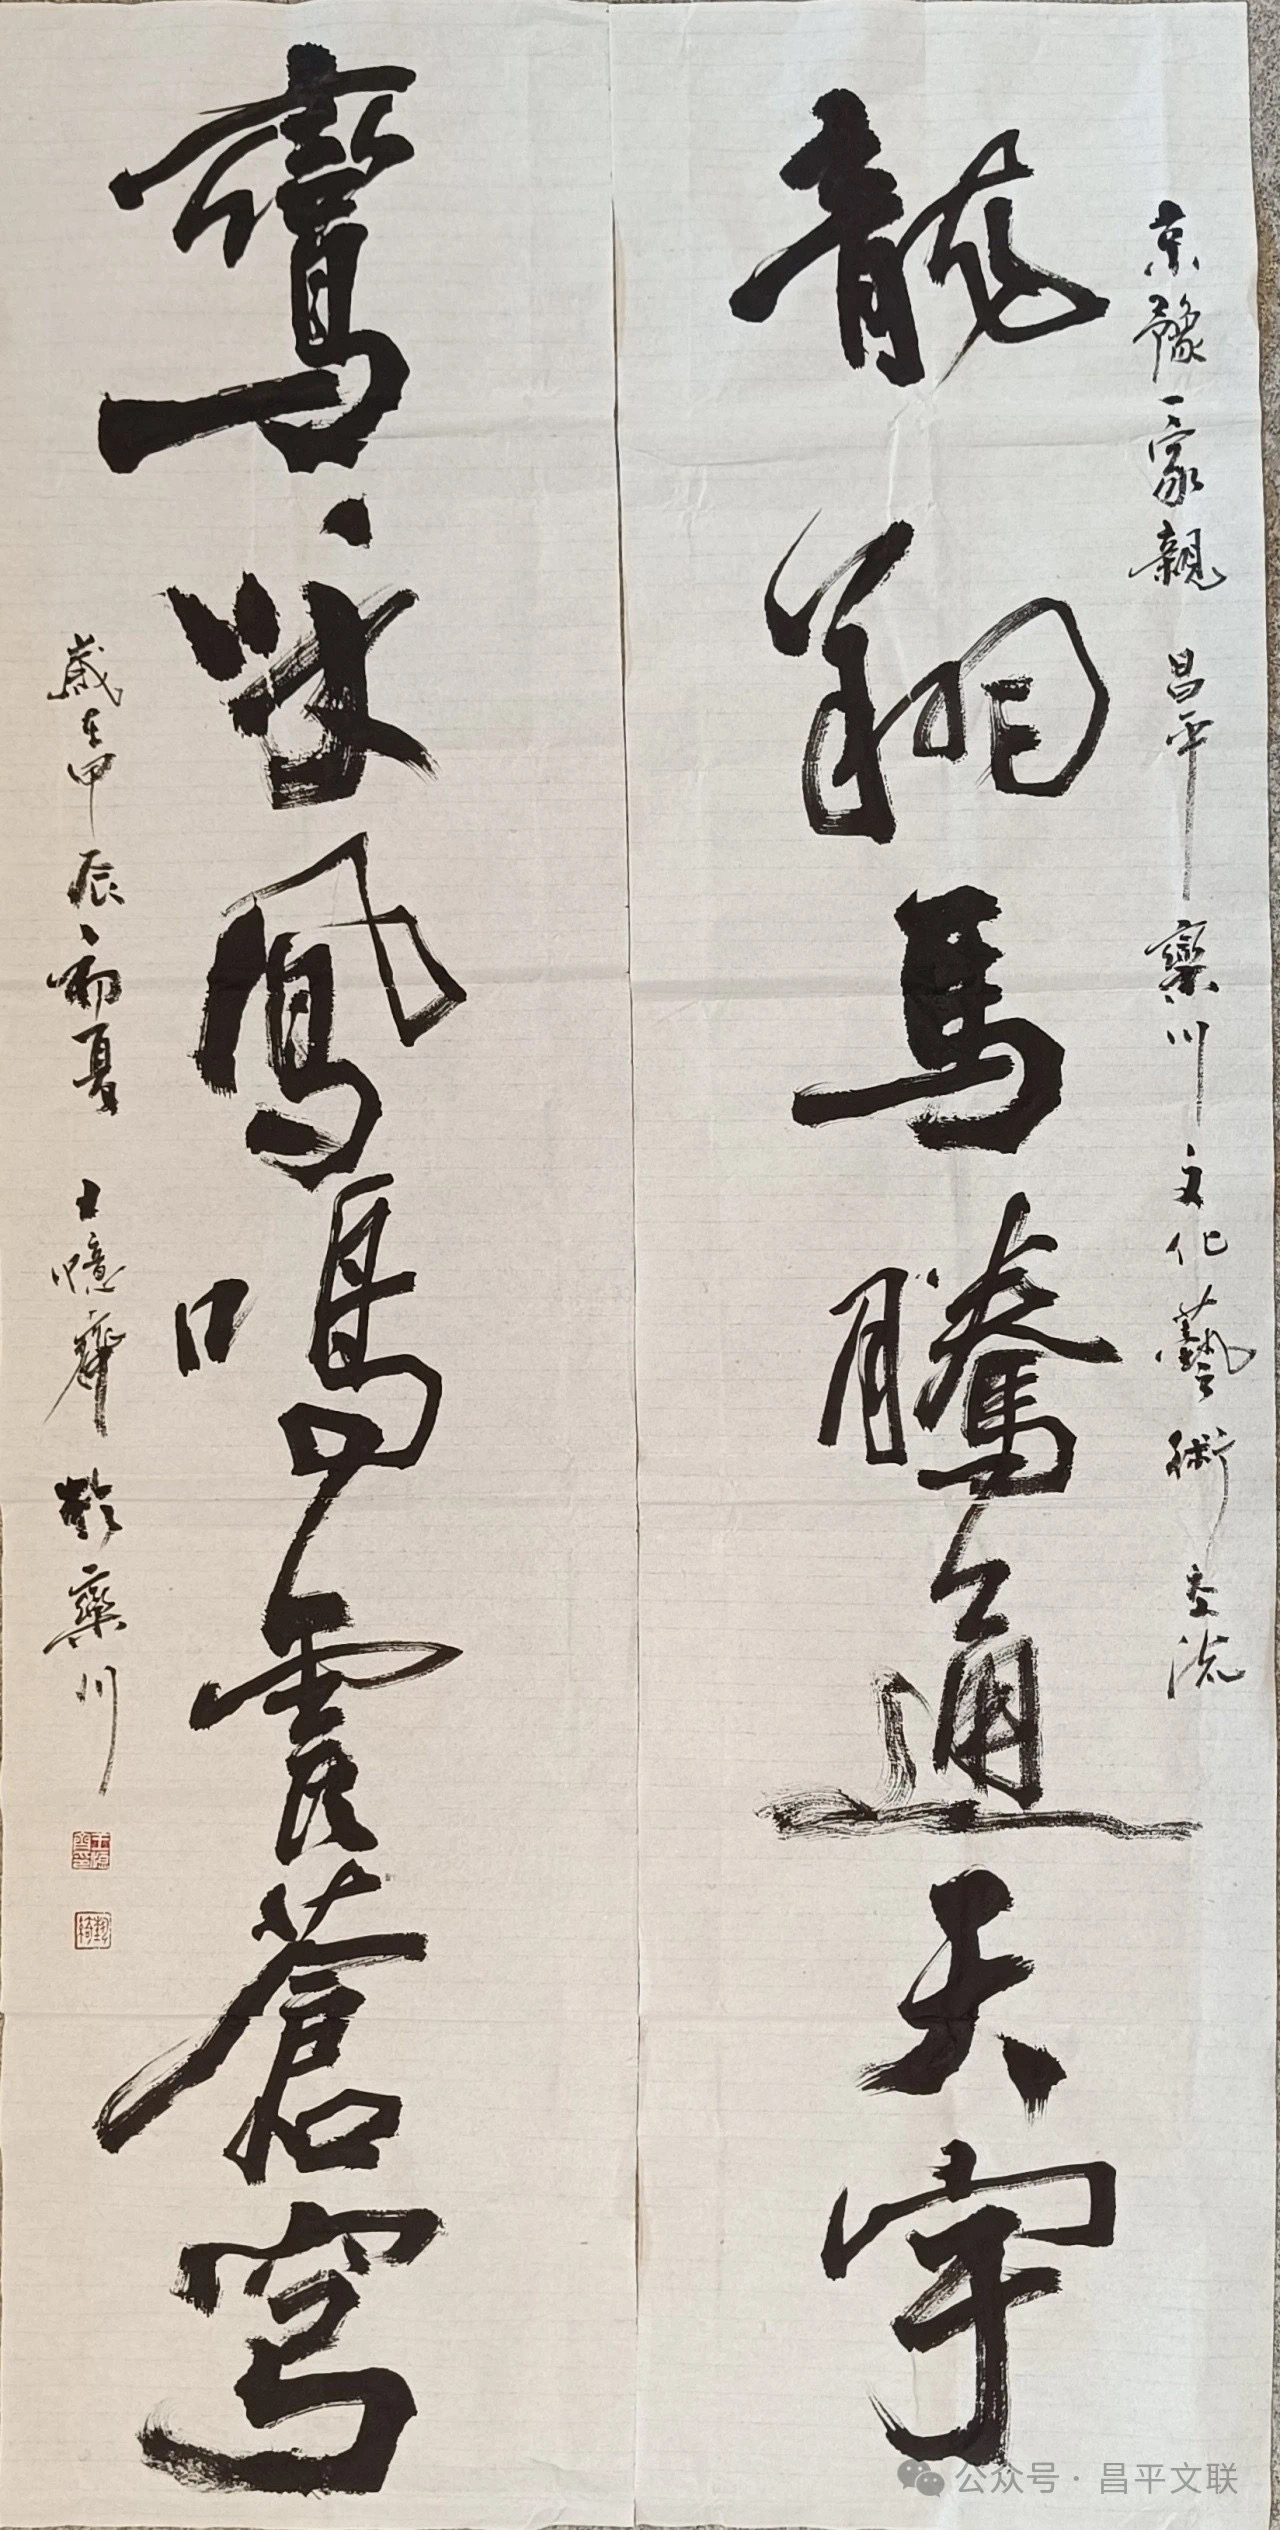 京豫一家親 昌平欒川文化藝術交流
龍翔馬騰通天宇
鸞咏鳳鳴震蒼穹
歲在甲辰初夏 王憶齊於欒川
公众号·昌平文联